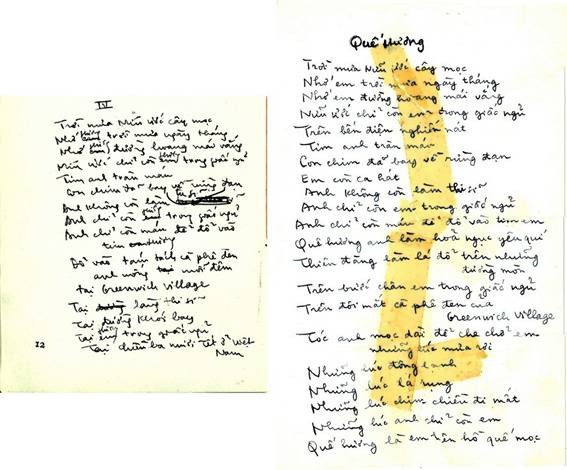 IV
Trời mưa Nữu Ước cây mọc
Nhớ trời mưa ngày tháng
Nhớ đường hoang mái vắng
Nữu Ước chỉ còn em trong giấc ngủ
Tim anh tràn máu
Con chim đã bay về rừng đạn
Anh không còn làm thi sĩ
Anh chỉ còn trong giấc ngủ
Anh chỉ còn máu để đổ vào
tim
Đổ vào tách cà phê đen
anh uống mỗi đêm
tại Greenwich Village
Tại làng thi sĩ
Tại đường khói bay
Tại trong giấc ngủ
Tại chiều ba mươi Tết ở Việt
Nam
12
Quê hương
Trời mưa Nữu Ước cây mọc
Nhớ em trời mưa ngày tháng
Nhớ em đường hoang mái vắng
Nữu Ước chỉ còn em trong giấc ngủ
Trên bến điện nghiền nát
Tim anh tràn máu
Con chim đã bay về rừng đạn
Em còn ca hát
Anh không còn làm thi sĩ
Anh chỉ còn em trong giấc ngủ
Anh chỉ còn máu để đổ vào tim em
Quê hương anh làm hoả ngục yêu quí
Thiên đàng làm lá đổ trên những
đường mòn
Trên bước chân em trong giấc ngủ
Trên đôi mắt cà phê đen của
Greenwich Village
Tóc anh mọc dài để che chở em
những lúc mưa rơi
Những lúc đông lạnh
Những lúc lá rụng
Những lúc chim chiều đi mất
Những lúc anh chỉ còn em
Quê hương là em trên hồ quế mọc